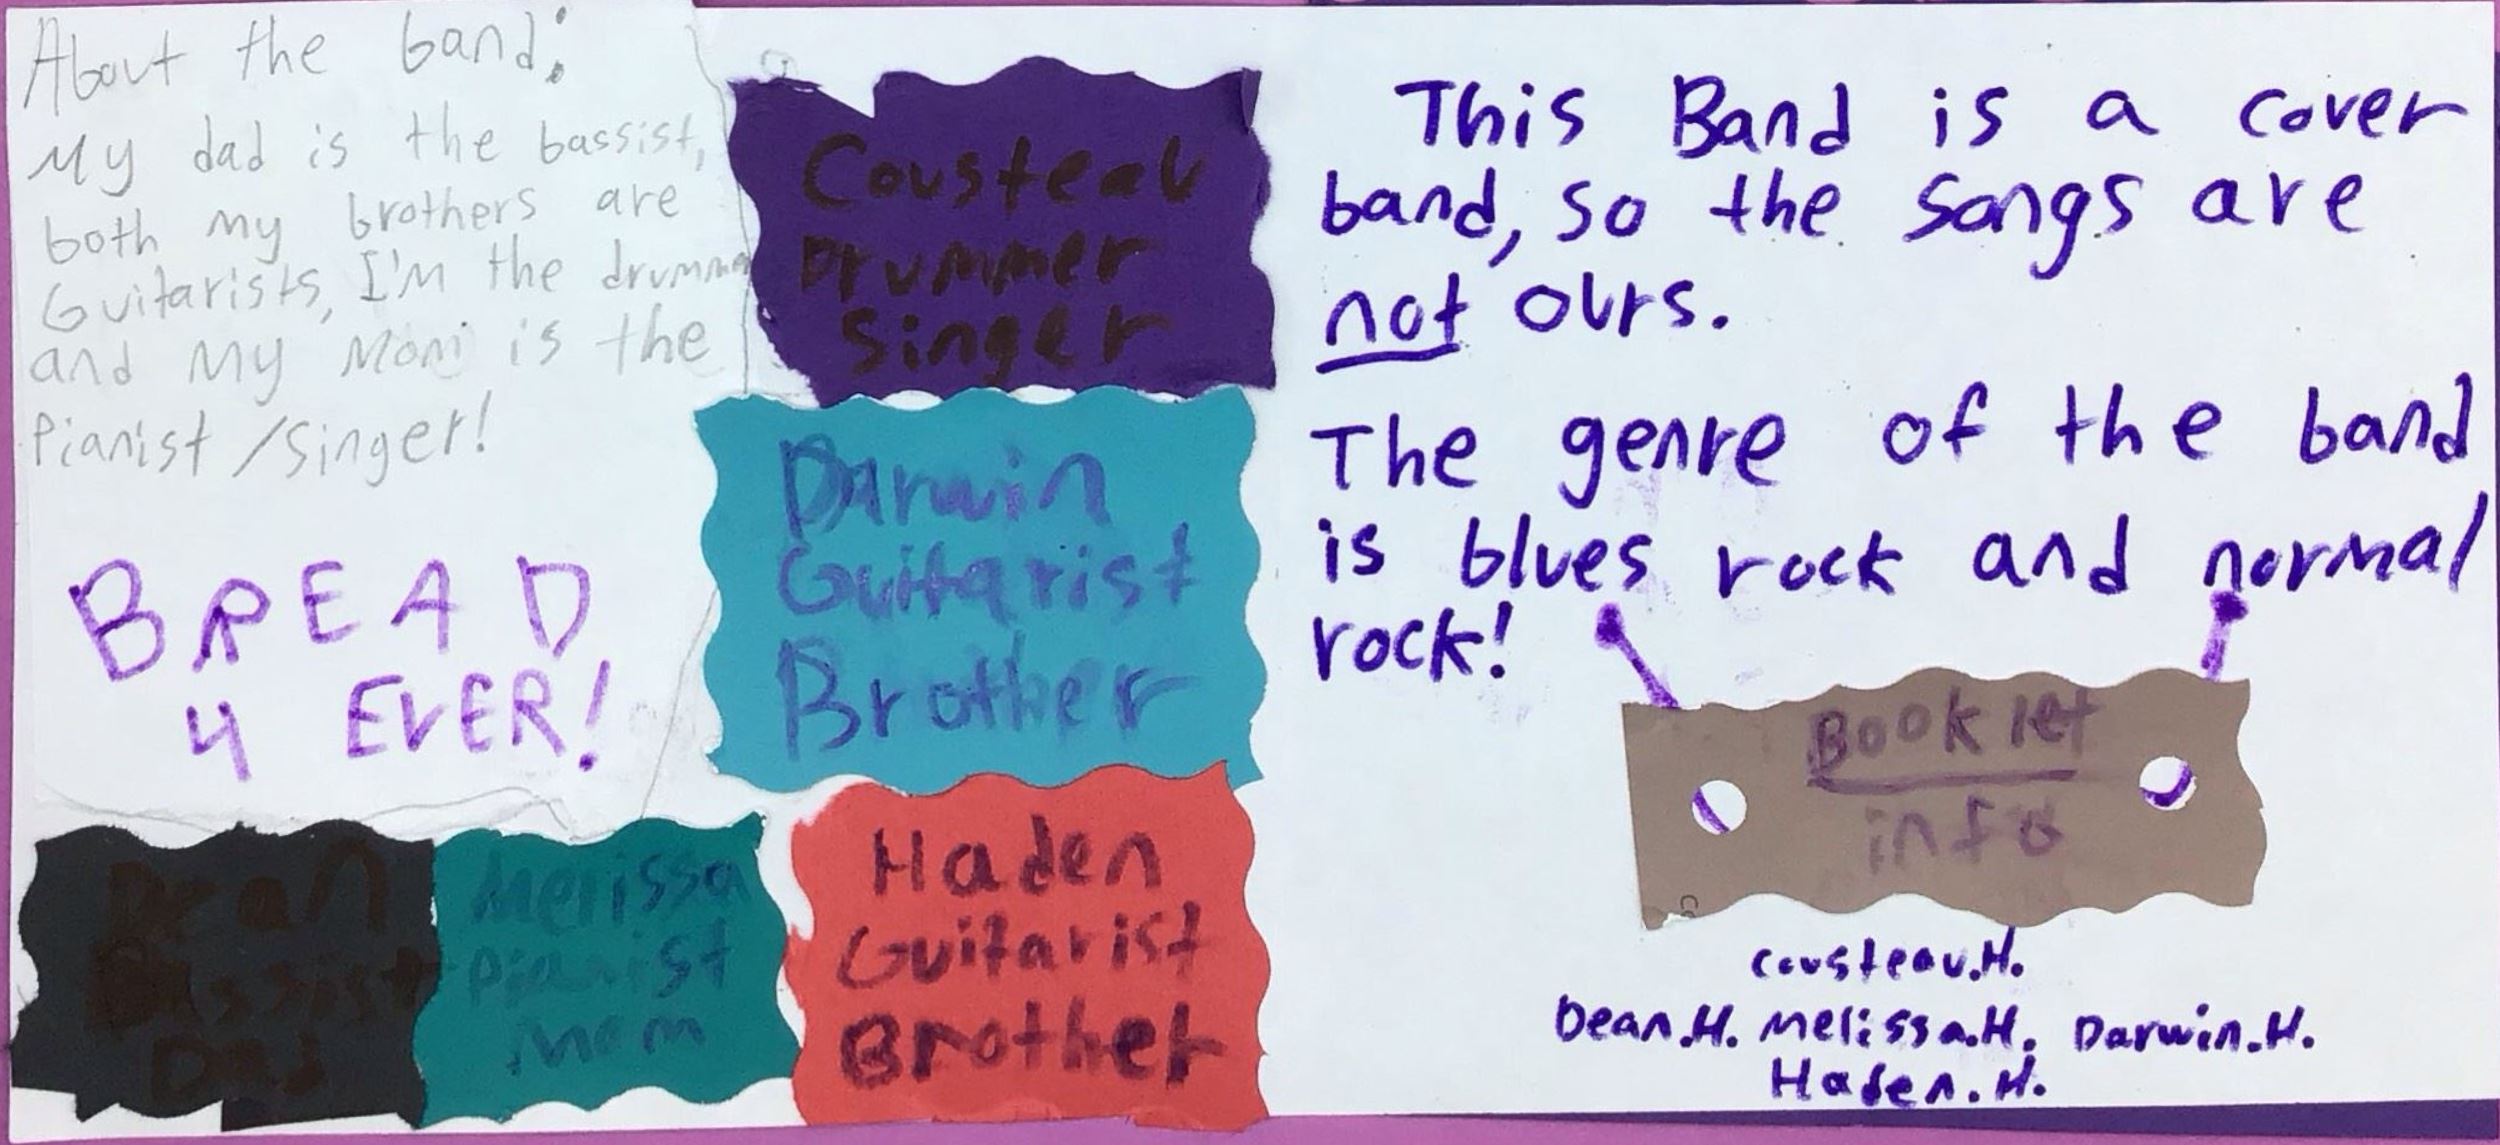 About the band:
My dad is the bassist,
both my brothers are
Guitarists, I'm the drummer
and my Mom is the
Pianist /Singer!
BREAD
4 EVER!
Cousteau
Drummer
Singer
Darwin
Guitarist
Brother
Dean
Bassist
Dad
Melissa
Pianist
Mom
Haden
Guitarist
Brother
This Band is a cover
band, so the songs are
not ours.
The genre of the band
is blues rock and normal
rock!
Booklet
info
Cousteau.H.
Dean.H. Melissa.H. Darwin.H.
Haden.H.